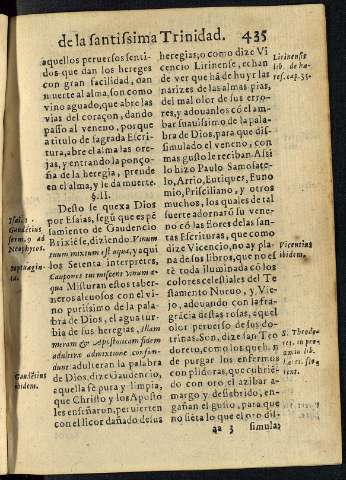 de la santissima Trinidad. 435
aquellos peruersos senti-
dos que dan los hereges
con gran facilidad, dan
muerte al alma, son como
vino aguado, que abre las
vias del coraçon, dando
passo al veneno, porque
a titulo de sagrada Escri-
tura, abre el alma las ore-
jas, y entrando la ponço-
ña de la heregia, prende
en el alma, y le da muerte.
§. II.
Desto se quexa Dios
por Esaias, segũ que es pẽ
samiento de Gaudencio
Brixiẽse, diziendo: Vinum
tuum mixtum est aqua, y aqui
los Setenta interpretes,
Caupones tui miscent vinum a-
qua. Misturan estos taber-
neros aleuosos con el vi-
no purissimo de la pala-
bra de Dios, el agua tur-
bia de sus heregias, illam
meram & Apostolicam fidem
adultera admixtione confun-
dunt: adulteran la palabra
de Dios, dize Gaudencio,
aquella sẽ pura y limpia,
que Christo y los Aposto
les enseñaron, peruierten
con el licor dañado de sus
heregias; o como dize Vi
cencio Lirinense, echan
de ver que ha de huyr las
narizes de las almas pias,
del mal olor de sus erro-
res, y adouanlos cõ el am-
bar suauissimo de la pala-
bra de Dios, para que dis-
simulado el veneno, con
mas gusto le reciban. Assi
lo hizo Paulo Samosate-
no, Arrio, Eutiques, Euno
mio, Prisciliano, y otros
muchos, los quales de tal
suerte adornarõ su vene-
no cõ las flores de las san-
tas Escrituras, que como
dize Vicencio, no ay pla-
na de sus libros, que no es
tè toda iluminada cõ los
colores celestiales del Te
stamento Nueuo, y Vie-
jo, adouando con la fra-
grácia destas rosas, aquel
olor peruerso de sus do-
trinas. Son, dize san Teo
doreto, como los que han
de purgar los enfermos
con pildoras, que cubriẽd-
do con oro el azibar a-
margo y dessabrido, en-
gañan el gusto, para que
no siẽta lo que el oro dis-
aa 3 simula:
Isai. 1.
Gaudẽcius
serm. 9. ad
Neophytos.
Septuagin-
ta.
Gaudẽcius
ibidem.
Lirinense
lib. de hæ-
res. cap. 35.
Vicentius
ibidem.
S. Theodo-
ret. in pro-
œmio lib.